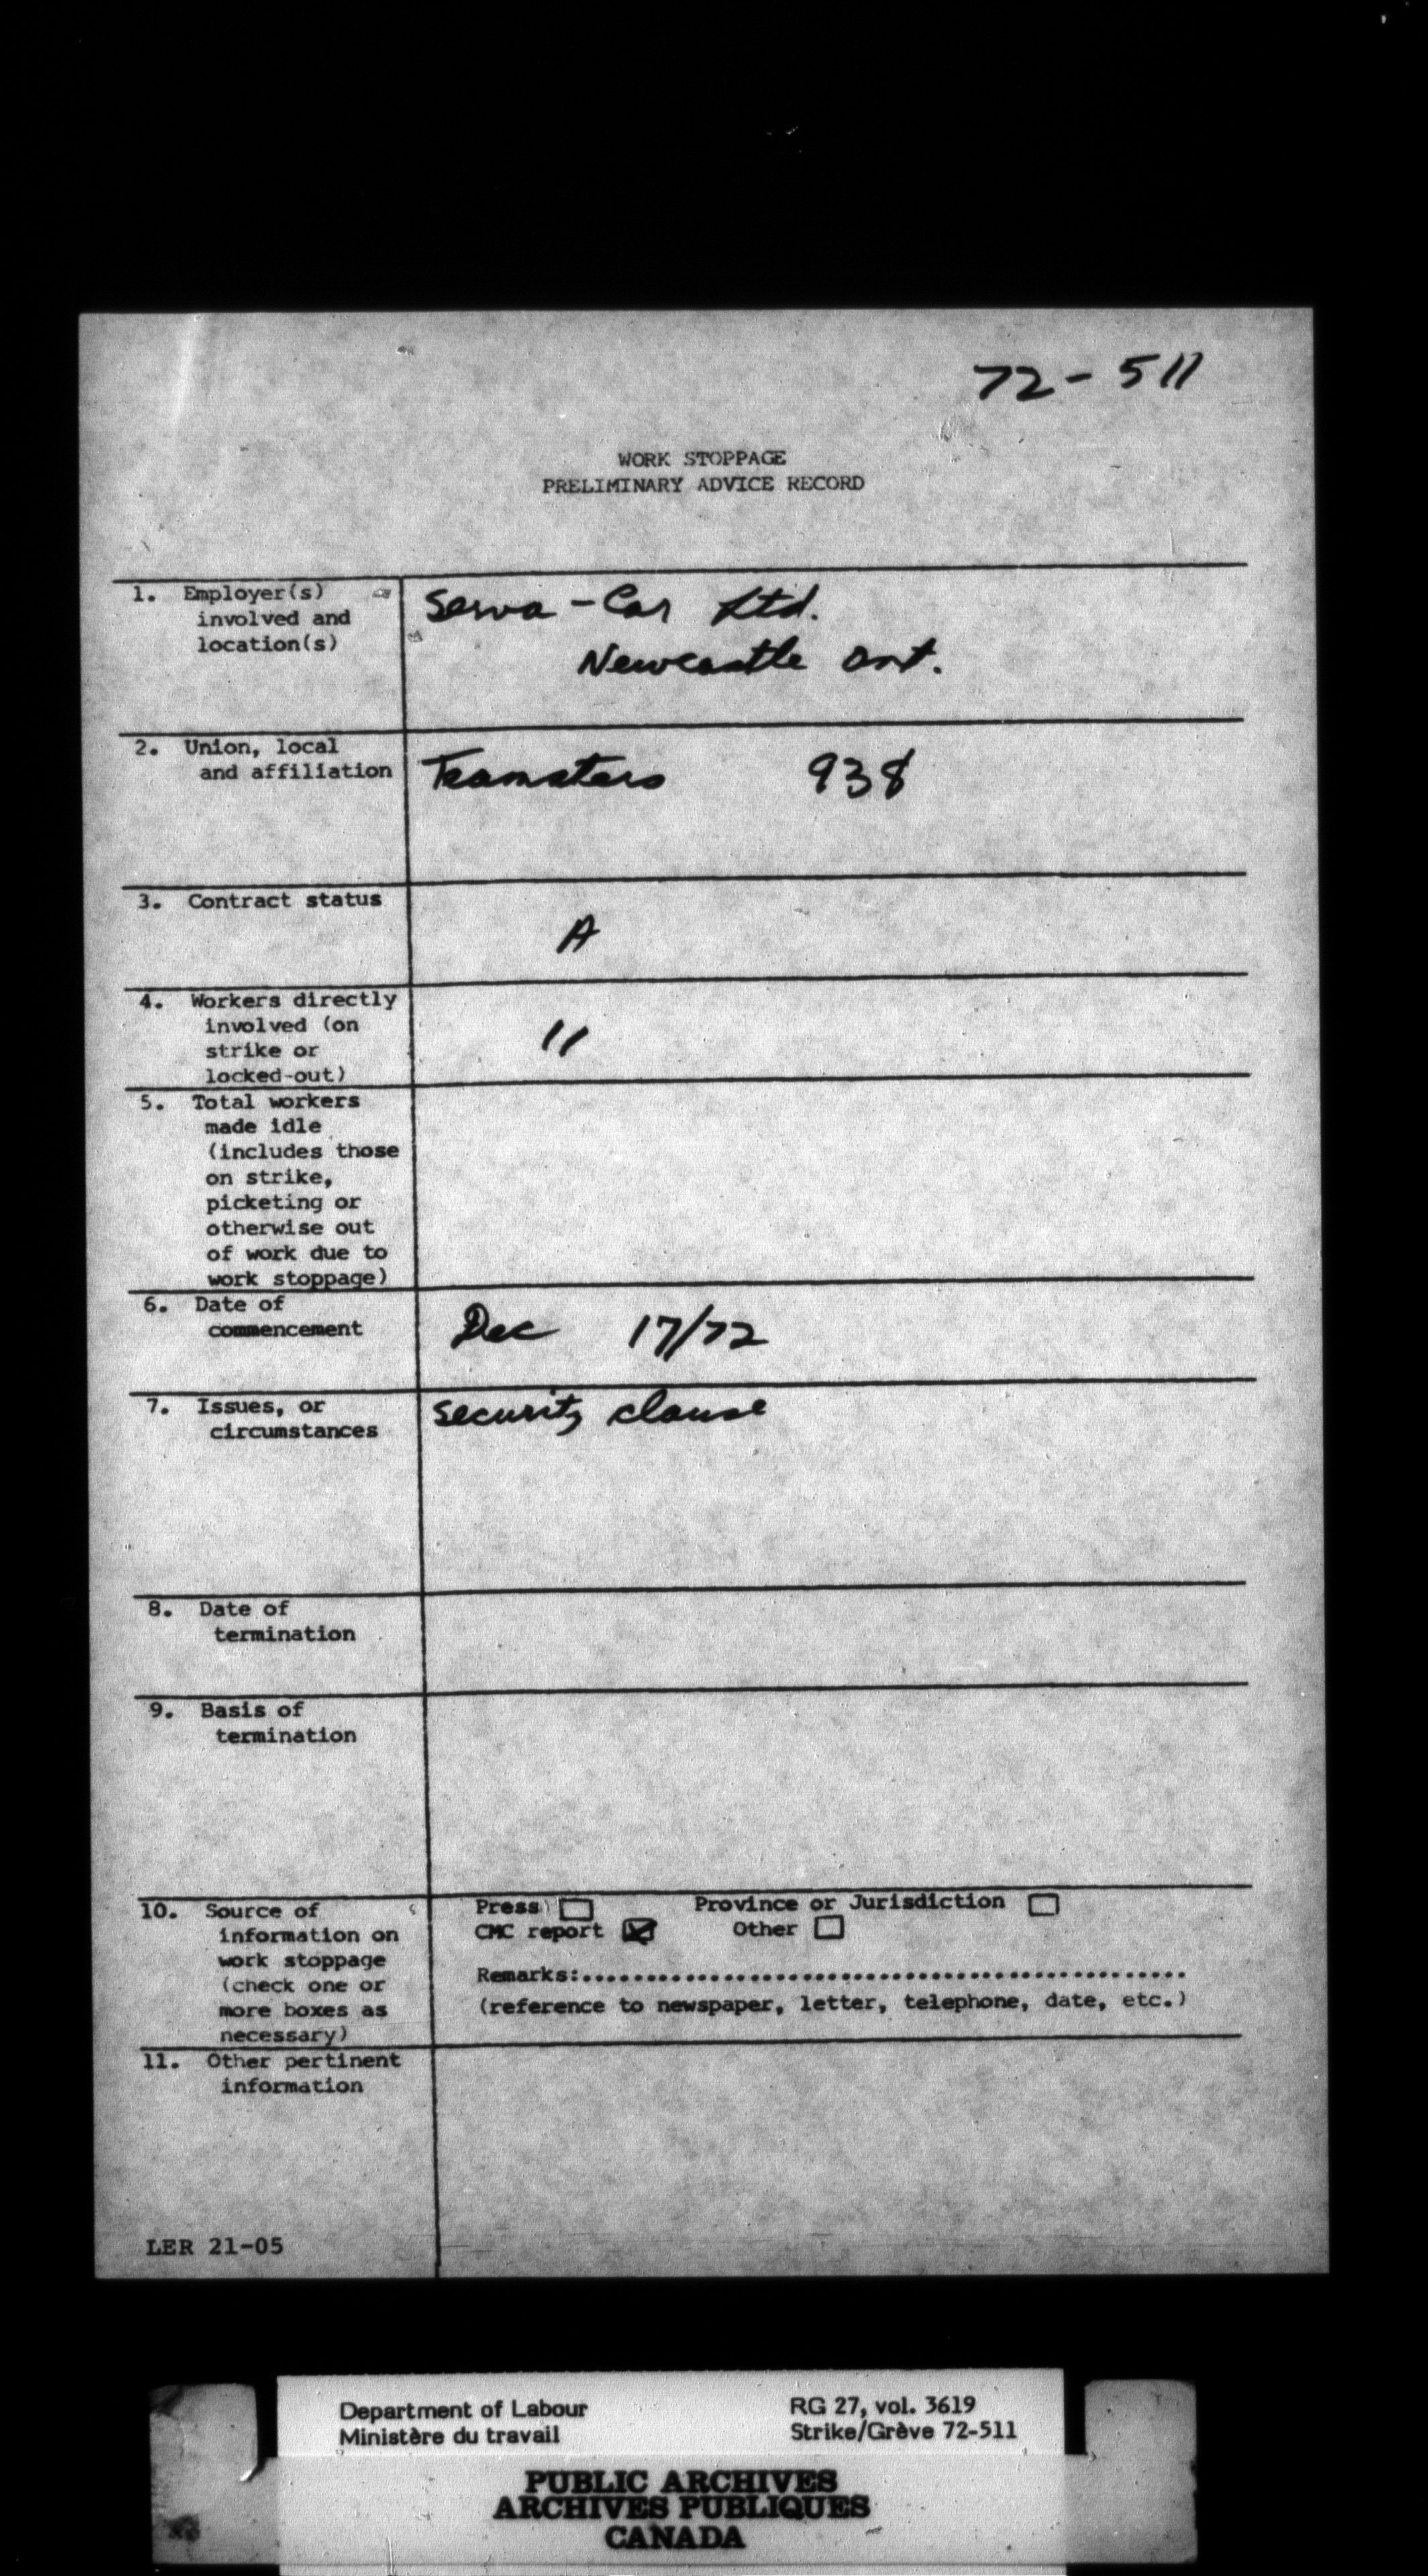 72-511
WORK STOPPAGE
PRELIMINARY ADVICE RECORD
1. Employer(s)
involved and
location(s)
Serva-Car Ltd.
Newcastle Ont.
2. Union, local
and affiliation
Teamsters 938
3. Contract status
A
4. Workers directly
involved (on
strike or
locked-out)
11
5. Total workers
made idle
(includes those
on strike,
picketing or
otherwise out
of work due to
work stoppage)
6. Date of
commencement
Dec 17/72
7. Issues, or
circumstances
security clause
8. Date of
termination
9. Basis of
termination
10. Source of
information on
work stoppage
(check one or
more boxes as
necessary)
Press Province or Jurisdiction
CMC report Other
Remarks:................................................
(reference to newspaper, letter, telephone, date, etc.)
11. Other pertinent
information
LER 21-05
Department of Labour
Ministère du travail
RG 27, vol. 3619
Strike/Grève 72-511
PUBLIC ARCHIVES
ARCHIVES PUBLIQUES
CANADA